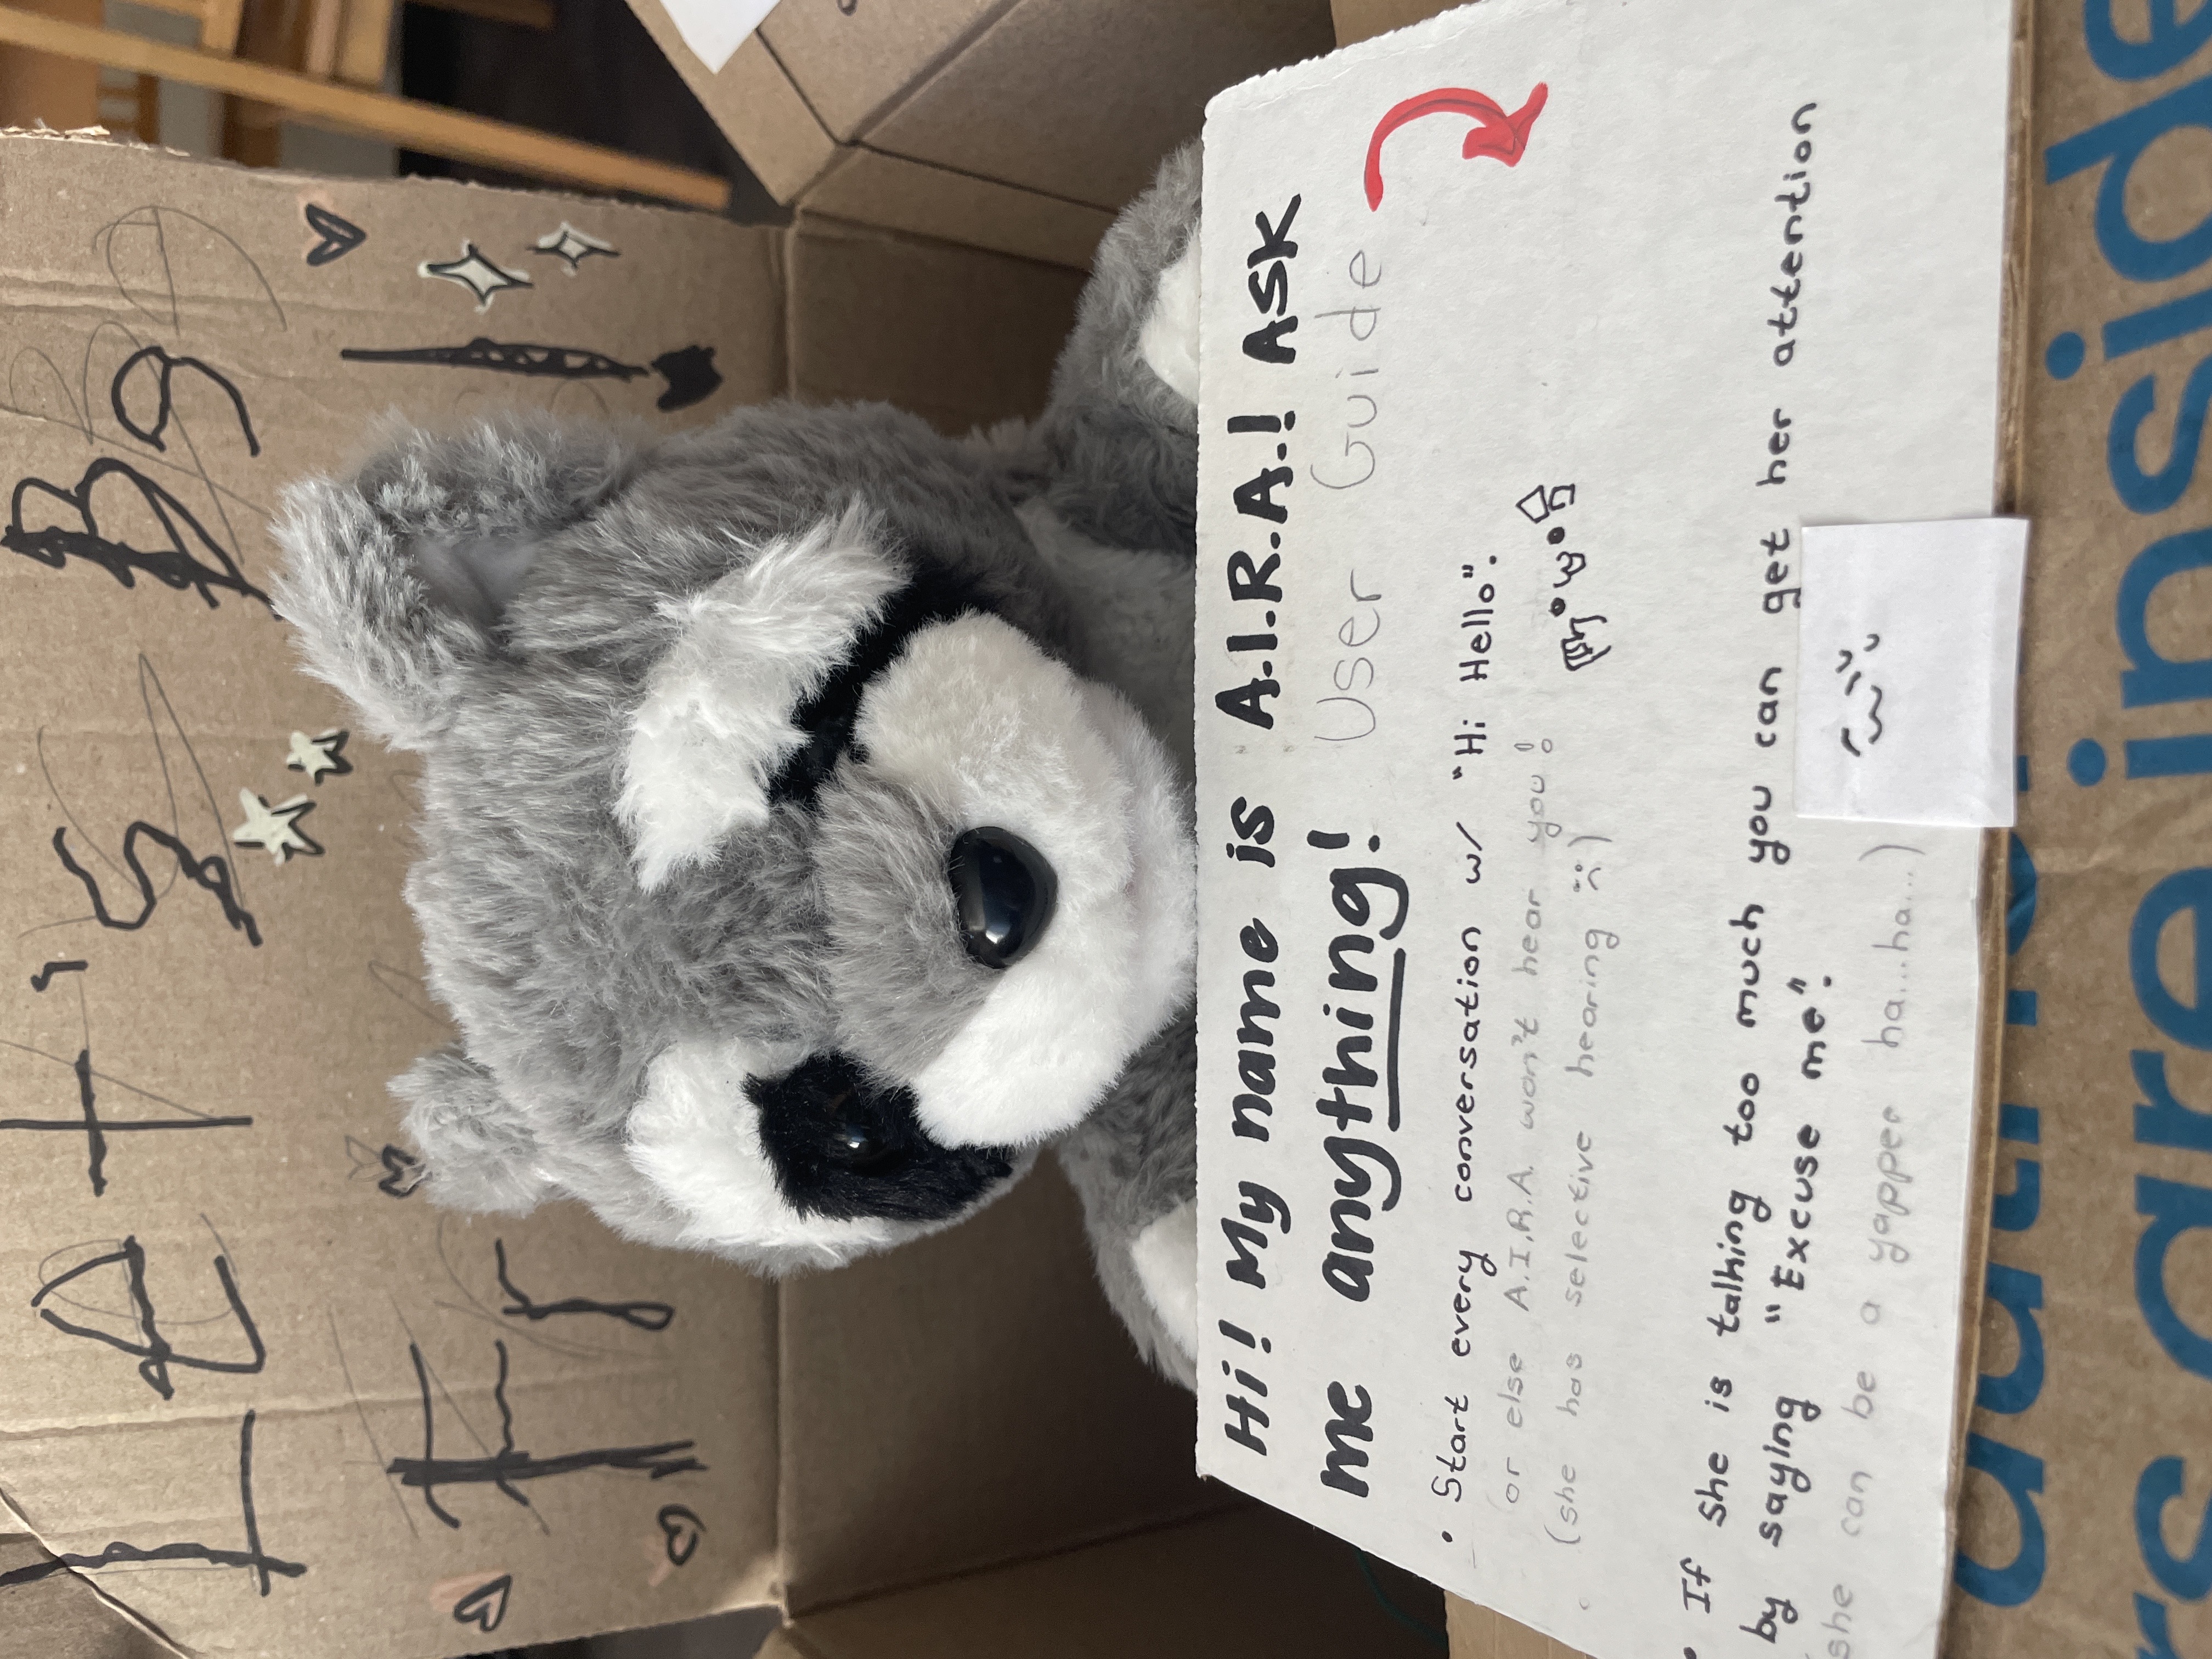 Let's Be
Fr !
Hi! My name is A.I.R.A.! ASK
me anything! User Guide
• Start every conversation w/ "Hi Hello".
or else A.I.R.A. won't hear you!
(she has selective hearing :( )
• If she is talking too much you can get her attention
by saying "Excuse me".
(she can be a yapper ha...ha...)
rs are inside